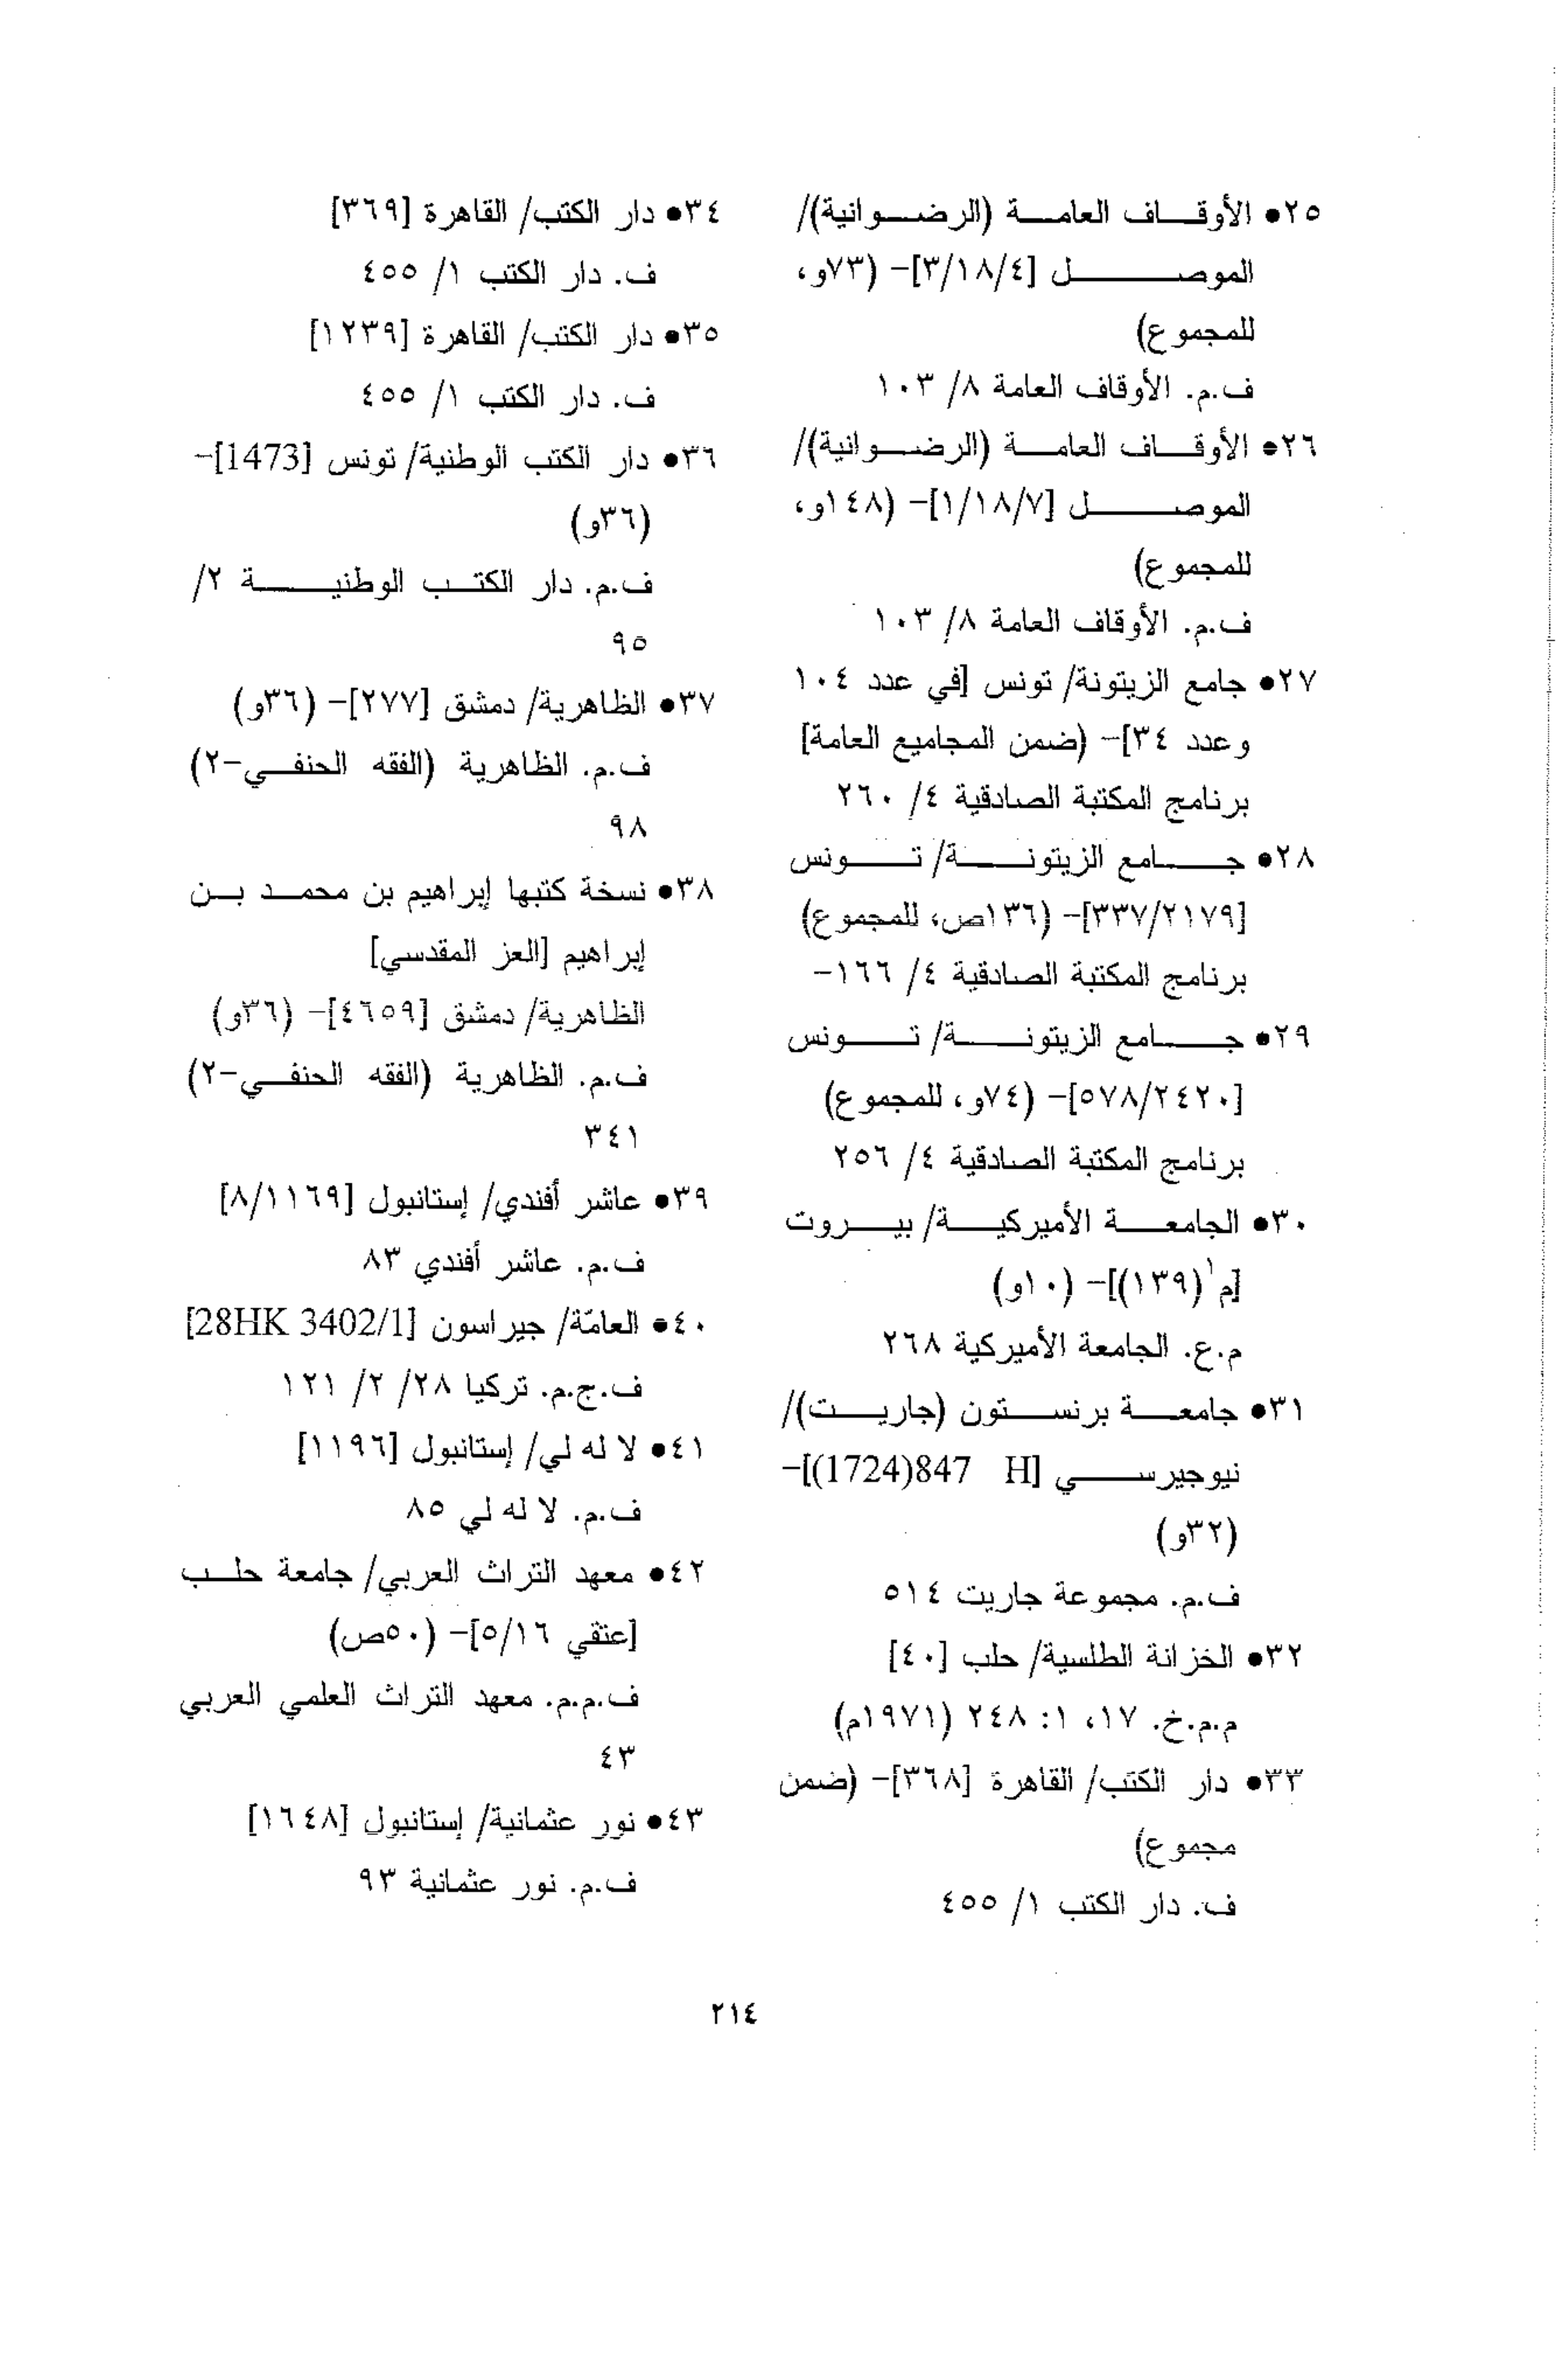 ٢٥• الأوقاف العامة (الرضوانية)/
الموصل [٣/١٨/٤]- (٧٣و،
للمجموع)
ف.م. الأوقاف العامة ٨/ ١٠٣
٢٦• الأوقاف العامة (الرضوانية)/
الموصل [١/١٨/٧]- (١٤٨و،
للمجموع)
ف.م. الأوقاف العامة ٨/ ١٠٣
٢٧• جامع الزيتونة/ تونس [في عدد ١٠٤
وعدد ٣٤]- (ضمن المجاميع العامة]
برنامج المكتبة الصادقية ٤/ ٢٦٠
٢٨• جامع الزيتونة/ تونس
[٣٣٧/٢١٧٩]- (١٣٦ص، للمجموع)
برنامج المكتبة الصادقية ٤/ ١٦٦-
٢٩• جامع الزيتونة/ تونس
[٥٧٨/٢٤٢٠]- (٧٤و، للمجموع)
برنامج المكتبة الصادقية ٤/ ٢٥٦
٣٠• الجامعة الأميركية/ بيروت
[م١(١٣٩)]- (١٠و)
م.ع. الجامعة الأميركية ٢٦٨
٣١• جامعة برنستون (جاريت)/
نيوجيرسي [H 847(1724)]-
(٣٢و)
ف.م. مجموعة جاريت ٥١٤
٣٢• الخزانة الطلسية/ حلب [٤٠]
م.م.خ. ١٧، ١: ٢٤٨ (١٩٧١م)
٣٣• دار الكتب/ القاهرة [٣٦٨]- (ضمن
مجموع)
ف. دار الكتب ١/ ٤٥٥
٣٤• دار الكتب/ القاهرة [٣٦٩]
ف. دار الكتب ١/ ٤٥٥
٣٥• دار الكتب/ القاهرة [١٢٣٩]
ف. دار الكتب ١/ ٤٥٥
٣٦• دار الكتب الوطنية/ تونس [1473]-
(٣٦و)
ف.م. دار الكتب الوطنية ٢/
٩٥
٣٧• الظاهرية/ دمشق [٢٧٧]- (٣٦و)
ف.م. الظاهرية (الفقه الحنفي-٢)
٩٨
٣٨• نسخة كتبها إبراهيم بن محمد بن
إبراهيم [العز المقدسي]
الظاهرية/ دمشق [٤٦٥٩]- (٣٦و)
ف.م. الظاهرية (الفقه الحنفي-٢)
٣٤١
٣٩• عاشر أفندي/ إستانبول [٨/١١٦٩]
ف.م. عاشر أفندي ٨٣
٤٠• العامّة/ جيراسون [28HK 3402/1]
ف.ج.م. تركيا ٢٨/ ٢/ ١٢١
٤١• لا له لي/ إستانبول [١١٩٦]
ف.م. لا له لي ٨٥
٤٢• معهد التراث العربي/ جامعة حلب
[عتقي ٥/١٦]- (٥٠ص)
ف.م.م. معهد التراث العلمي العربي
٤٣
٤٣• نور عثمانية/ إستانبول [١٦٤٨]
ف.م. نور عثمانية ٩٣
٢١٤